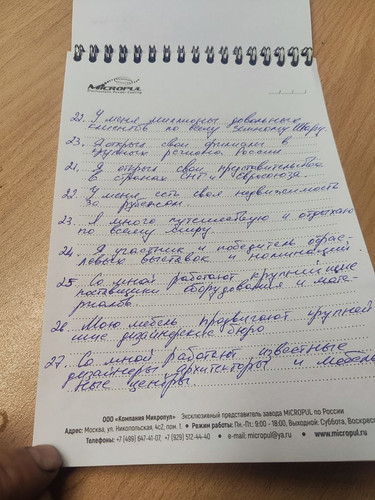 MICROPUL
22. У меня миллионы довольных
клиентов по всему Земному Шару.
23. Я открыл свои филиалы в
крупных регионах России
21. Я открыл свои представительства
в странах СНГ и Евросоюза.
22. У меня есть своя недвижимость
за рубежом.
23. Я много путешествую и отдыхаю
по всему миру.
24. Я участник и победитель отрас-
левых выставок и номинаций.
25. Со мной работают крупнейшие
поставщики оборудования и мате-
риалов.
26. Мою мебель продвигают крупней
шие дизайнерские бюро
27. Со мной работают известные
дизайнеры, архитекторы и мебель
ные центры.
ООО «Компания Микропул» Эксклюзивный представитель завода MICROPUL по России
Адрес: Москва, ул. Никопольская, 4с2, пом. 1. • Режим работы: Пн.-Пт.: 9:00 - 18:00, Выходной: Суббота, Воскресень
Телефоны: +7 (499) 647-41-07, +7 (929) 512-44-40 • e-mail: micropul@ya.ru • www.micropul.ru